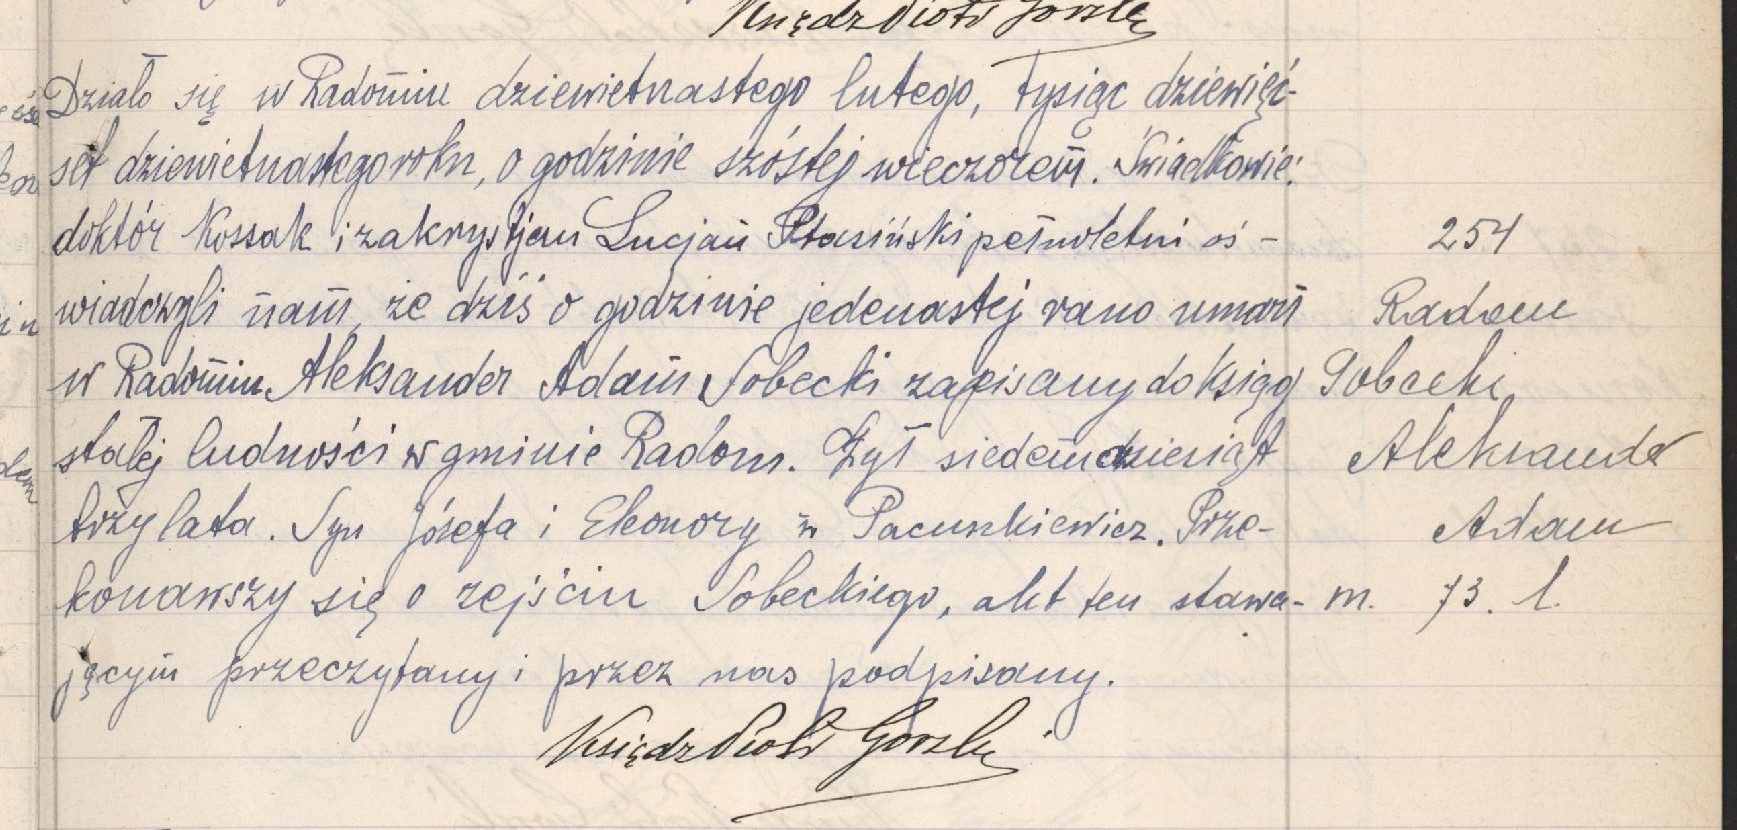 Ksiądz Piotr Gorzk
Działo się w Radomiu dziewietnastego lutego, tysiąc dziewięć-
set dziewietnastego roku, o godzinie szóstej wieczorem. Świadkowie:
doktór Kossak i zakrystjan Lucjan Ptasiński pełnoletni oś-
254
wiadczyli nam, że dziś o godzinie jedenastej rano umarł
Radom
w Radomiu Aleksander Adam Sobecki zapisany do księg
Sobecki
stałej ludności w gminie Radom. Żył siedemdziesiąt
Aleksander
trzy lata. Syn Józefa i Eleonory z Pacuszkiewicz. Prze-
Adam
konawszy się o zejściu Sobeckiego, akt ten stawa-
m. 73. l.
jącym przeczytany i przez nas podpisany.
Ksiądz Piotr